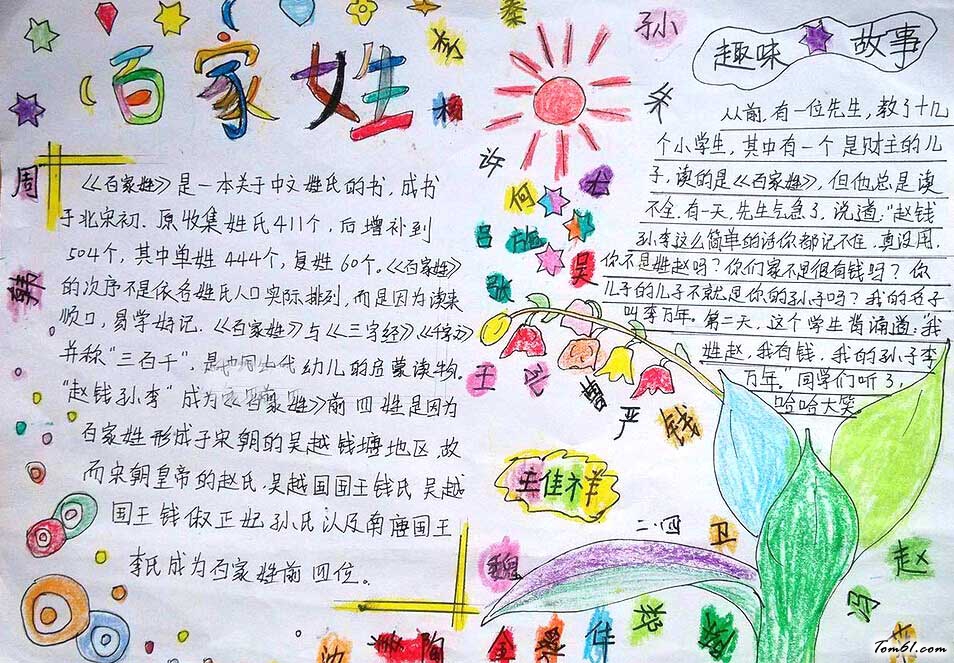 百家姓
《百家姓》是一本关于中文姓氏的书,成书
于北宋初.原收集姓氏411个,后增补到
504个,其中单姓444个,复姓60个。《百家姓》
的次序不是依各姓氏人口实际排列,而是因为读来
顺口,易学好记.《百家姓》与《三字经》《千字文》
并称"三百千",是中国古代幼儿的启蒙读物.
"赵钱孙李"成为《百家姓》前四姓是因为
百家姓形成于宋朝的吴越钱塘地区,故
而宋朝皇帝的赵氏.吴越国国王钱氏吴越
国王钱俶正妃孙氏以及南唐国王
李氏成为百家姓前四位。
趣味故事
从前,有一位先生,教了十几
个小学生,其中有一个是财主的儿
子,读的是《百家姓》,但他总是读
不全.有一天,先生气急了,说道:"赵钱
孙李这么简单的话你都记不住.真没用.
你不是姓赵吗?你们家不是很有钱吗?你
儿子的儿子不就是你的孙子吗?我的名子
叫李万年。第二天,这个学生背诵道:"我
姓赵,我有钱.我的孙子李
万年."同学们听了,
哈哈大笑.
秦
孙
朱
杨
许
何
尤
吕
施
张
吴
周
韩
王
孔
曹
严
钱
王佳祥
二.四
卫
魏
赵
冯
沈
陶
金
佳
Tom61.com